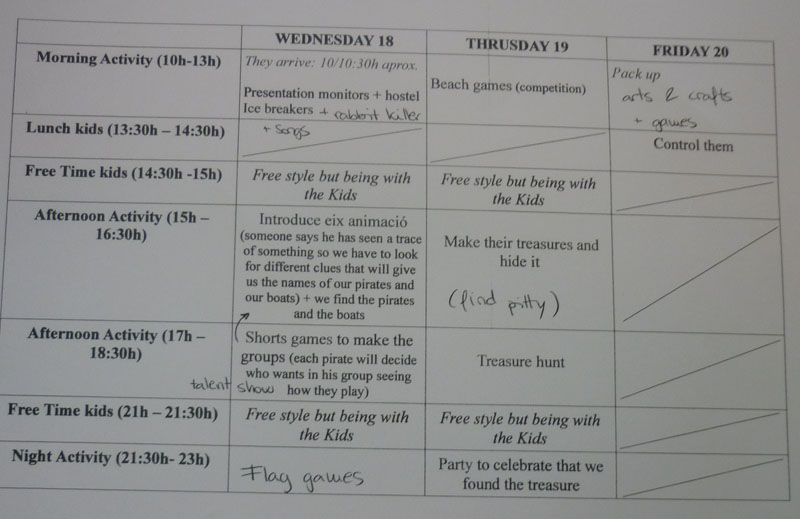 WEDNESDAY 18 THRUSDAY 19 FRIDAY 20
Morning Activity (10h-13h)
They arrive: 10/10:30h aprox.
Presentation monitors + hostel
Ice breakers + rabbit killer
+ songs
Beach games (competition)
Pack up
arts & crafts
+ games
Lunch kids (13:30h – 14:30h)
Control them
Free Time kids (14:30h -15h)
Free style but being with
the Kids
Free style but being with
the Kids
Afternoon Activity (15h –
16:30h)
Introduce eix animació
(someone says he has seen a trace
of something so we have to look
for different clues that will give
us the names of our pirates and
our boats) + we find the pirates
and the boats
Make their treasures and
hide it
(find pitty)
Afternoon Activity (17h –
18:30h)
Shorts games to make the
groups (each pirate will decide
who wants in his group seeing
how they play)
talent show
Treasure hunt
Free Time kids (21h – 21:30h)
Free style but being with
the Kids
Free style but being with
the Kids
Night Activity (21:30h- 23h)
Flag games
Party to celebrate that we
found the treasure